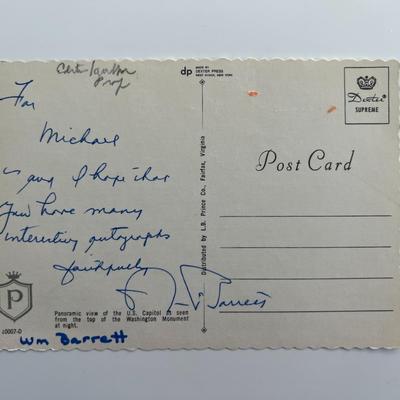 dp
MADE BY
DEXTER PRESS
WEST NYACK, NEW YORK
For
Michael
and I hope that
You have many
interesting autographs
faithfully
Barrett
P
Panoramic view of the U.S. Capitol as seen
from the top of the Washington Monument
at night.
Wm Barrett
Distributed by L.B. Prince Co., Fairfax, Virginia
Dexter
SUPREME
Post Card